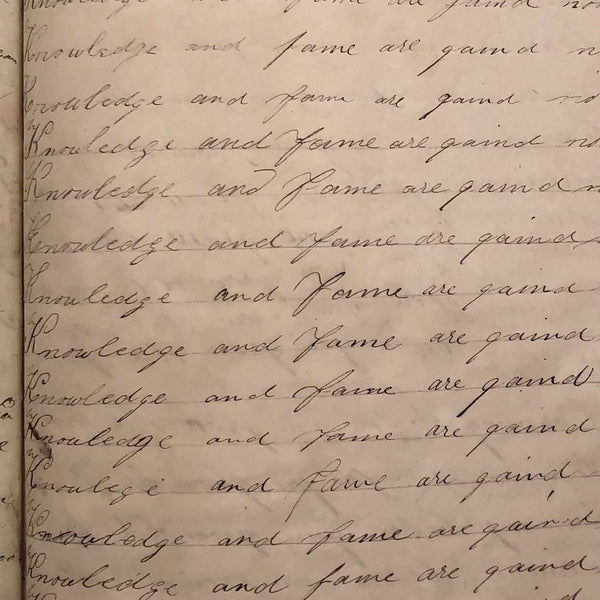 Knowledge and fame are gaind no
Knowledge and fame are gaind n
Knowledge and fame are gaind no
Knowledge and Fame are gaind no
Knowledge and Fame are gaind n
Knowledge and fame are gaind
Knowledge and Fame are gaind
Knowledge and Fame are gaind
Knowledge and fame are gaind
Knowledge and fame are gaind
Knowlege and fame are gaind
Knowledge and fame are gaind
Knowledge and fame are gaind